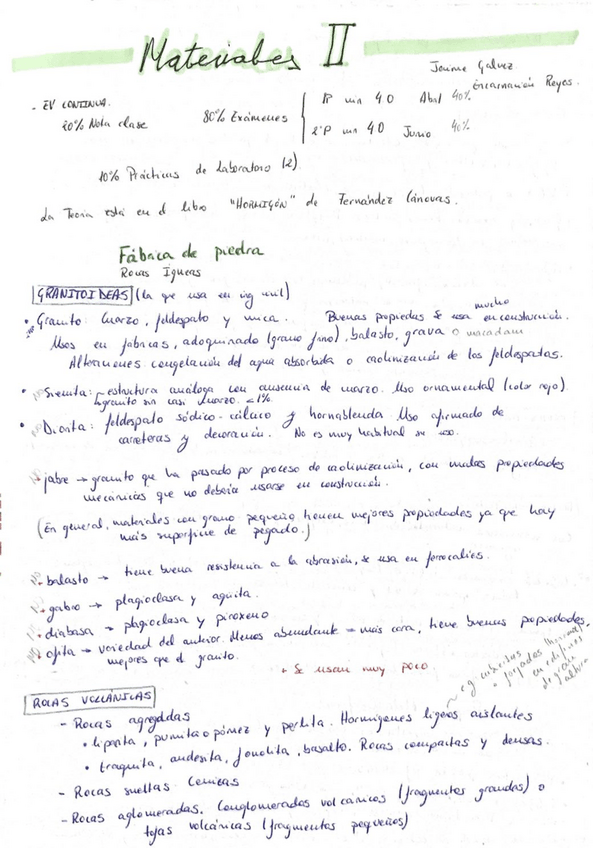 Materiales II
Jaime Galvez.
Encarnación Reyes.
- EV CONTINUA.
20% Nota clase
80% Exámenes
1ºP min 40 Abril 40%
2ºP min 40 Junio 40%
10% Prácticas de Laboratorio (2)
La Teoría está en el libro "HORMIGÓN" de Fernández Cánovas.
Fábrica de piedra
Rocas Ígneas
GRANITOIDEAS (la que usa en ing civil)
• Granito: cuarzo, feldespato y mica. Buenas propiedas se usa mucho en construcción.
Usos en fabricas, adoquinado (grano fino), balasto, grava o macadam
Alteraciones congelación del agua absorbida o caolinización de los feldespatos.
• Sienita: estructura análoga con ausencia de cuarzo. Uso ornamental (color rojo).
granito sin casi cuarzo. <1%
• Diorita: feldespato sódico-cálcico y hornablenda. Uso afirmado de
carreteras y decoración. No es muy habitual su uso.
jabre → granito que ha pasado por proceso de caolinización, con malas propiedades
mecánicas que no debería usarse en construcción.
(En general, materiales con grano pequeño tienen mejores propiedades ya que hay
más superficie de pegado.)
balasto → tiene buena resistencia a la abrasión, se usa en ferrocariles.
• gabro → plagioclasa y augita.
• diabasa → plagioclasa y piroxeno
• ofita → variedad del anterior. Menos abundante → más cara, tiene buenas propiedades,
mejores que el granito.
+ Se usan muy poco
ROCAS VOLCÁNICAS
~ eg cubiertas
o forjados
en edificios
de gran
altura
- Rocas agregadas
• liparita, pumita o pómez y perlita. Hormigones ligeros aislantes
• traquita, andesita, fonolita, basalto. Rocas compactas y densas.
- Rocas sueltas Cenizas
- Rocas aglomeradas. Conglomerados volcánicos (fragmentos grandes) o
tofas volcánicas (fragmentos pequeños)